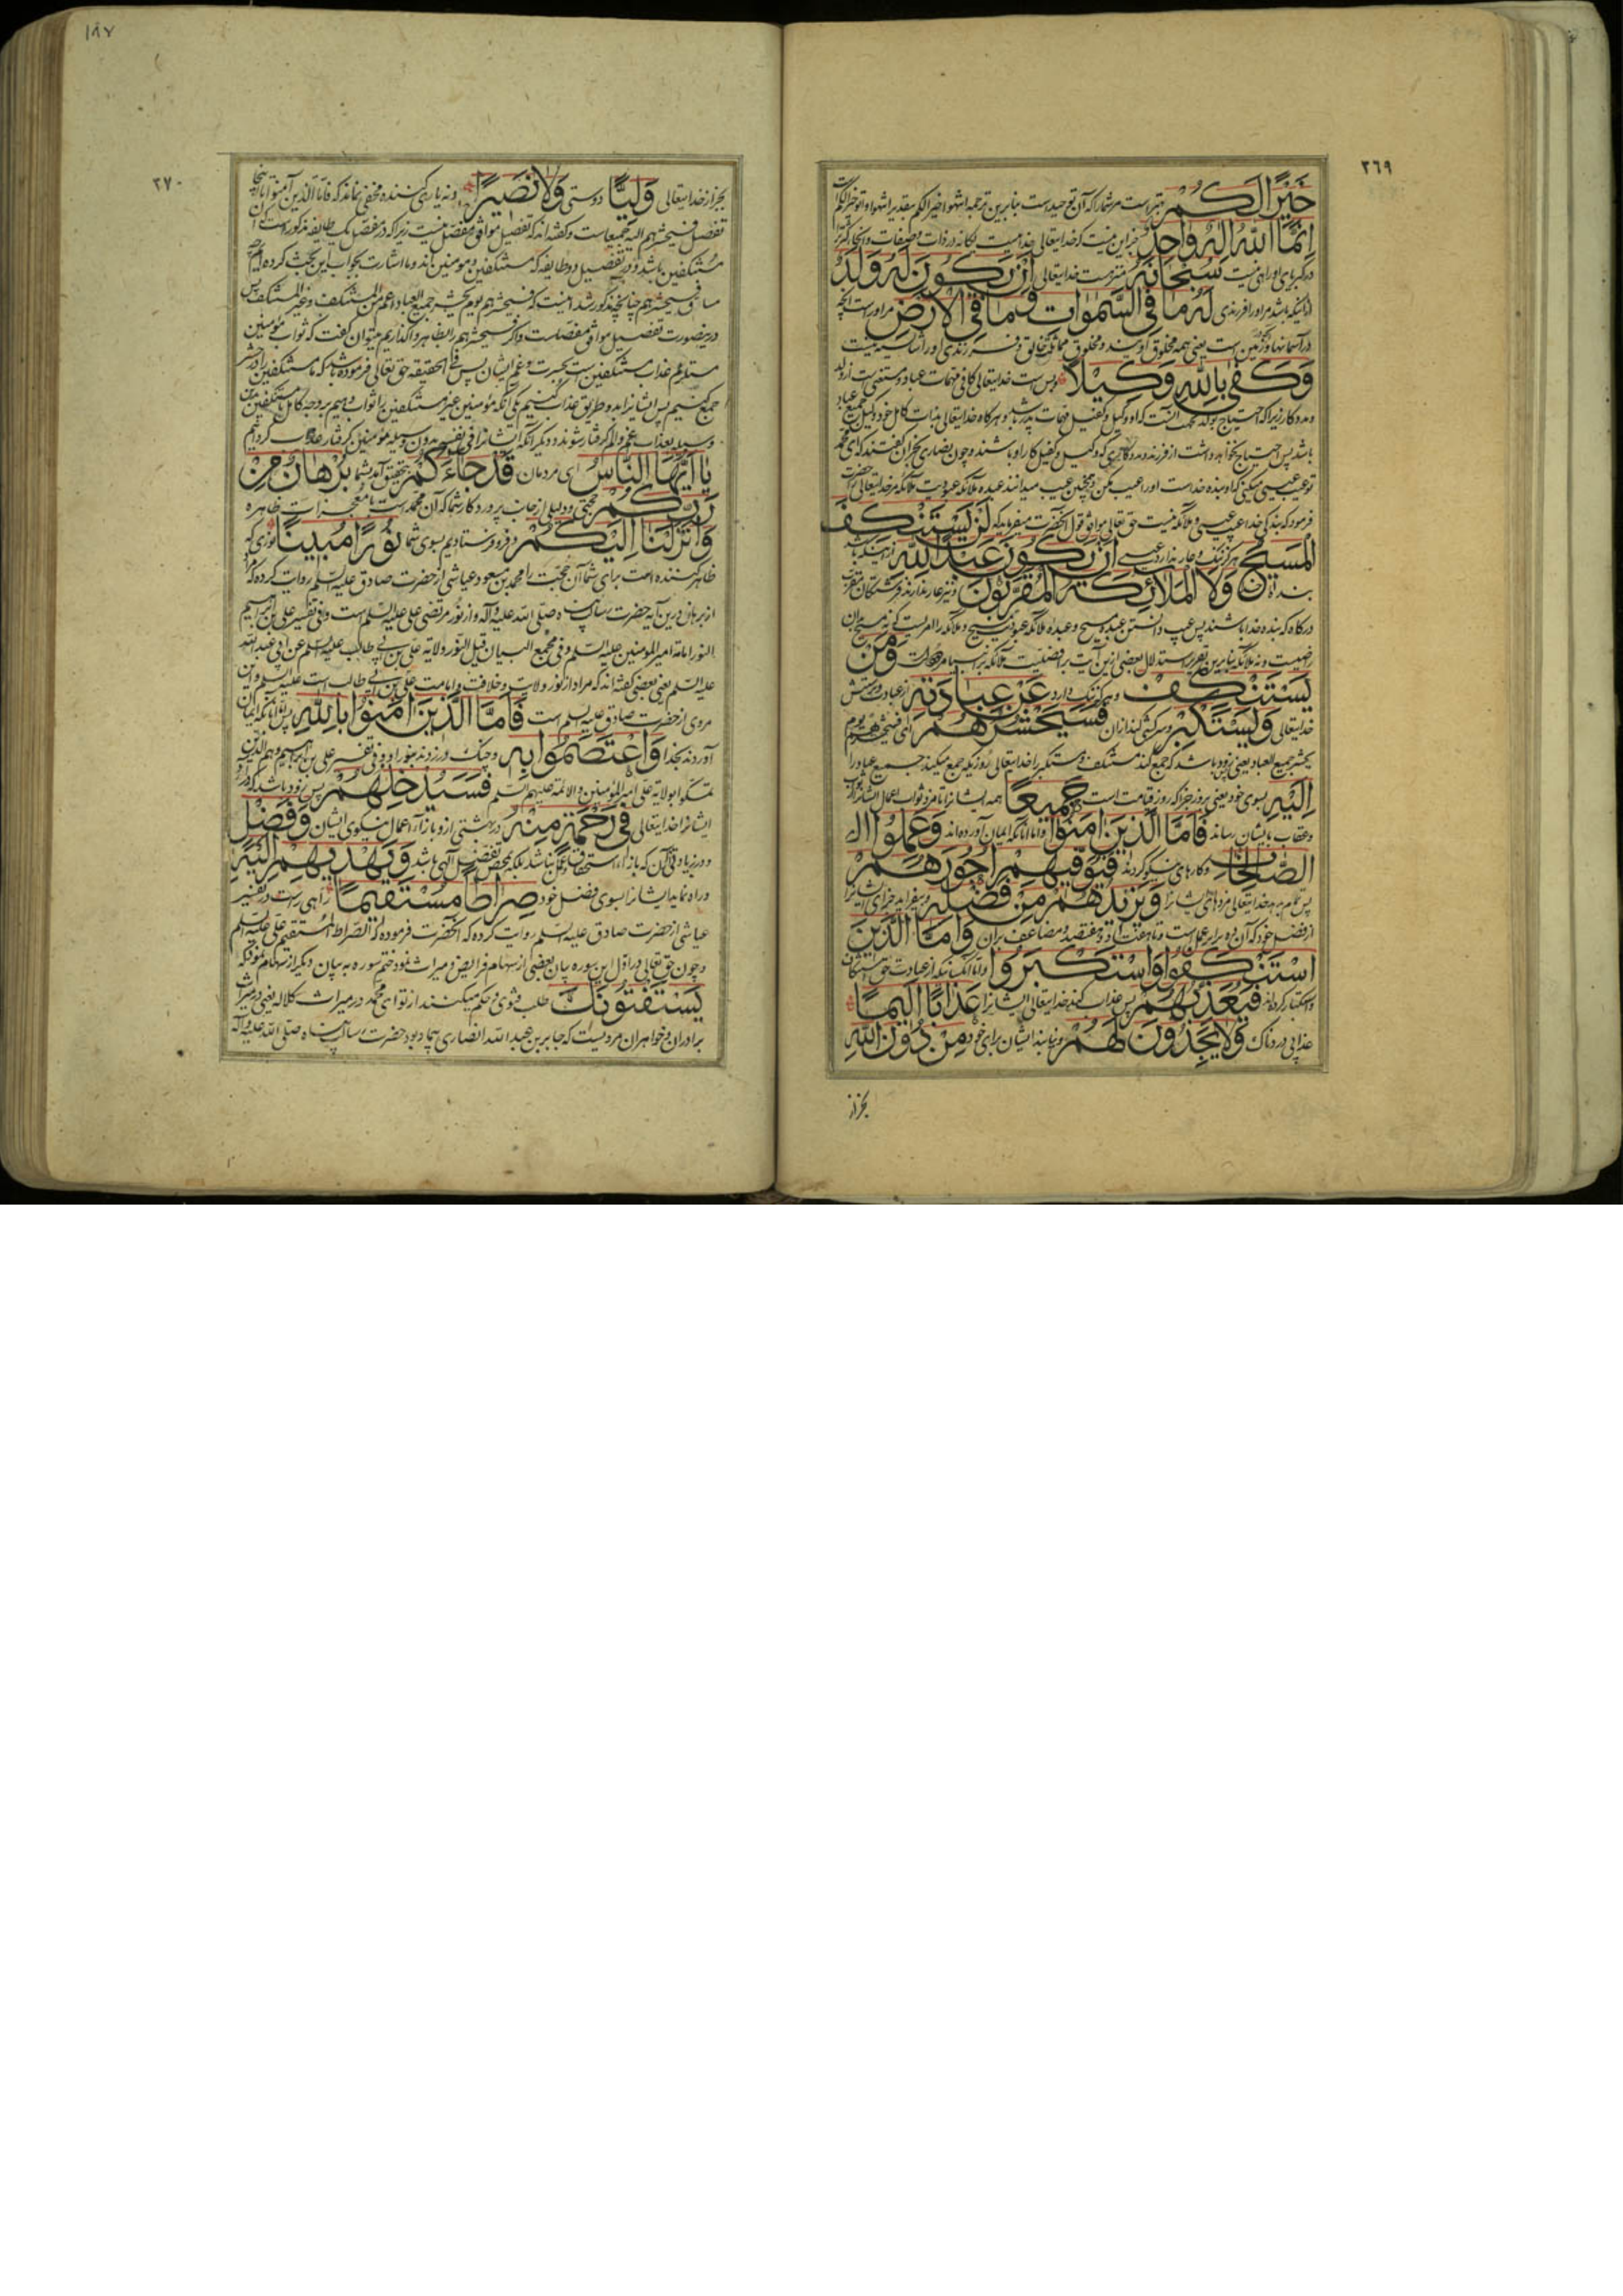 ٢٦٩
خَيْرًا لَكُمْ بهتر است مر شما را که آن توحید است بنابرین ترجمه انتهوا خیرا لکم بتقدیر انتهوا واتوا خیرا لکم است
اِنَّمَا اللّٰهُ اِلٰهٌ وَاحِدٌ جز این نیست که خدایتعالی خدائیست یگانه در ذات و صفات و انجا کثرت
در کبریای او راهی نیست سُبْحَانَهُ منزهست خدایتعالی اَنْ يَكُونَ لَهُ وَلَدٌ
از اینکه باشد مر او را فرزندی لَهُ مَا فِى السَّمٰوَاتِ وَمَا فِى الْاَرْضِ مر او راست آنچه
در آسمانها و زمین است یعنی همه مخلوق اویند و مخلوق مماثل خالق و فرزندی او را شایسته نیست
وَكَفٰى بِاللّٰهِ وَكِيْلًا و بس است خدایتعالی کافی مهمات عباد و مستغنی است از ولد
و مددکار زیرا که احتیاج بولد بجهت آنست که او وکیل و کفیل مهمات پدر باشد و هرگاه خدایتعالی بذات کامل خود وکیل جمیع عباد
باشد پس احتیاج نخواهد داشت از فرزند و مددکاری که وکیل و کفیل کار او باشند و چون نصاری نجران گفتند که ای محمد
تو عیب عیسی میکنی که او بنده خداست او را عیب مکن و همچنین عیب میدانند عبده ملائکه عبودیت ملائکه مر خدایتعالی را حضرت
فرمود که بندگی خدا عیب عیسی و ملائکه نیست حق تعالی موافق قول آنحضرت میفرماید که لَنْ يَسْتَنْكِفَ
الْمَسِيْحُ هرگز ننگ و عار ندارد عیسی اَنْ يَكُونَ عَبْدًا لِلّٰهِ از اینکه باشد
بنده خدا وَلَا الْمَلَائِكَةُ الْمُقَرَّبُونَ و نیز عار ندارند فرشتگان مقرب
درگاه که بنده خدا باشند پس عیب دانستن عبده مسیح و عبده ملائکه عبودیت مسیح و ملائکه را امریست که نه مسیح بان
راضیست و نه ملائکه بنابرین تقریر استدلال بعضی ازین آیت بر افضلیت ملائکه بر انبیا مردودست وَمَنْ
يَسْتَنْكِفْ و هر که ننگ دارد عَنْ عِبَادَتِهِ از عبادت و پرستش
خدایتعالی وَيَسْتَكْبِرْ و سرکشی کند از ان فَسَيَحْشُرُهُمْ ای فسیحشرهم یوم
یحشر جمیع العباد یعنی پس زود باشد که جمع کند مستنکف و مستکبر را خدایتعالی روزیکه جمع میکند جمیع عباد را
اِلَيْهِ بسوی خود یعنی بروز جزا که روز قیامت است جَمِيعًا همه ایشانرا تا مزد ثواب اعمال ایشانرا
و عقاب بایشان رساند فَاَمَّا الَّذِينَ اٰمَنُوا و اما آنانکه ایمان آورده‌اند وَعَمِلُوا ال
الصَّالِحَاتِ و کارهای نیکو کرده‌اند فَيُوَفِّيهِمْ اُجُورَهُمْ
پس تمام بدهد خدایتعالی مزدهای ایشانرا وَيَزِيدُهُمْ مِنْ فَضْلِهِ و بیفزاید جزای ایشانرا
از فضل خود که آن ده برابر عمل است و تا هفتاد و هفتصد و مضاعف بران وَاَمَّا الَّذِينَ
اسْتَنْكَفُوا وَاسْتَكْبَرُوا و اما آنکسانیکه از عبادت حق استنکاف
و استکبار کرده‌اند فَيُعَذِّبُهُمْ پس عذاب کند خدایتعالی ایشانرا عَذَابًا اَلِيمًا
عذابی دردناک وَلَا يَجِدُونَ لَهُمْ و نیابند ایشان برای خود مِنْ دُونِ اللّٰهِ
بجز از
١٨٧
٢٧٠
بجز از خدایتعالی وَلِيًّا دوستی وَلَا نَصِيْرًا و نه یاری کننده مخفی نماند که فاما الذین آمنوا تا اینجا
تفصیل فسیحشرهم الیه جمیعا است و گفته‌اند که تفصیل موافق مفصل نیست زیرا که در مفصل یک طایفه مذکور است که آن
مستنکفین باشد و در تفصیل دو طایفه که مستنکفین و مومنین‌اند و ما اشارت بجواب این بحث کرده‌ایم
فسیحشرهم چنانچه مذکور شد اینست که فسیحشرهم یوم یحشر جمیع العباد اعم من المستنکف و غیر المستنکف پس
درینصورت تفصیل موافق مفصلست و اگر فسیحشرهم را بظاهر واگذاریم میتوان گفت که ثواب مؤمنین
مستلزم عذاب مستنکفین است بحسرت و غم ایشان پس فی الحقیقه حق تعالی فرموده باشد که ما مستنکفین را در حشر
جمع کنیم پس ایشانرا بدو طریق عذاب کنیم یکی آنکه مؤمنین غیر مستنکفین را ثواب دهیم بر وجه کامل تا مستنکفین بدین
وسیله بعذاب غم و الم گرفتار شوند و دیگر آنکه ایشانرا فی نفسه بدون وسیله مؤمنین گرفتار عذاب گردانیم
يَا اَيُّهَا النَّاسُ ای مردمان قَدْ جَاءَكُمْ بتحقیق آمد بشما بُرْهَانٌ مِنْ
رَبِّكُمْ حجتی و دلیلی از جانب پروردگار شما که آن محمد است با معجزات ظاهره
وَاَنْزَلْنَا اِلَيْكُمْ و فرو فرستادیم بسوی شما نُوْرًا مُبِينًا نوری که
ظاهر کننده است برای شما آن حجت را محمد بن مسعود عیاشی از حضرت صادق علیه السلم روایت کرده که مراد
از برهان درین آیه حضرت رسالت پناه صلی الله علیه و آله و از نور مرتضی علی علیه السلم است و فی تفسیر علی بن ابراهیم
النور امامة امیر المؤمنین علیه السلم و فی مجمع البیان قیل النور ولایة علی بن ابی طالب علیه السلم عن ابی عبد الله
علیه السلم یعنی بعضی گفته‌اند که مراد از نور ولایت و خلافت و امامت علی بن ابی طالب است علیه السلم و این
مروی از حضرت صادق علیه السلم است فَاَمَّا الَّذِينَ اٰمَنُوا بِاللّٰهِ پس اما آنانکه ایمان
آوردند بخدا وَاعْتَصَمُوا بِهِ و چنگ در زدند بنور او و فی تفسیر علی بن ابراهیم وهم الذین
تمسکوا بولایة علی امیر المؤمنین والائمة علیهم السلم فَسَيُدْخِلُهُمْ پس زود باشد که در آورد
ایشانرا خدایتعالی فِى رَحْمَةٍ مِنْهُ در بهشتی از و بازاء اعمال نیکوی ایشان وَفَضْلٍ
و در زیادتی آن که بازاء استحقاق عمل نباشد بلکه بمحض تفضل الهی باشد وَيَهْدِيهِمْ اِلَيْهِ
و راه نماید ایشانرا بسوی فضل خود صِرَاطًا مُسْتَقِيمًا راهی راست در تفسیر
عیاشی از حضرت صادق علیه السلم روایت کرده که آنحضرت فرموده که الصراط المستقیم علی علیه السلم
و چون حق تعالی در اول این سوره بیان بعضی از سهام فرایض و میراث نمود ختم سوره به بیان دیگر از سهام نموده که
يَسْتَفْتُونَكَ طلب فتوی و حکم میکنند از تو ای محمد در میراث کلاله یعنی در میراث
برادران و خواهران مرویست که جابر بن عبد الله انصاری بیمار بود حضرت رسالت پناه صلی الله علیه و آله